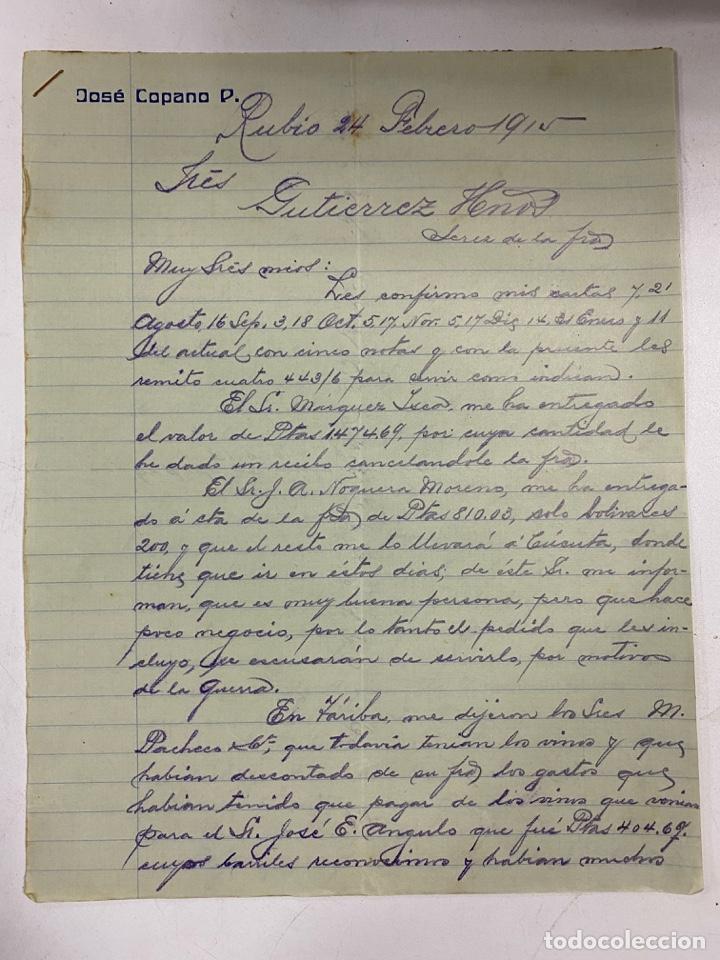 José Copano P.
Rubio 24 Febrero 1915
Srēs
Gutierrez Hnos
Jerez de la fra
Muy Srēs mios:
Les confirmo mis cartas 7, 21
Agosto, 16 Sep. 3,18 Oct. 5,17, Nov. 5,17 Dig 14, 21 Enero y 11
del actual, con cinco notas y con la presente les
remito cuatro 443/6 para servir como indican.
El Sr. Márquez Isea, me ha entregado
el valor de Ptas 1474.69, por cuya cantidad le
he dado un recibo cancelandole la fra.
El Sr. J. A. Noguera Moreno, me ha entrega-
do á cta de la fra de Ptas 810.03, solo bolivares
200, y que el resto me lo llevará á Cúcuta, donde
tiene que ir en éstos dias; de éste Sr. me infor-
man, que es muy buena persona, pero que hace
poco negocio, por lo tanto el pedido que les in-
cluyo, se escusarán de servirlo, por motivos
de la Guerra.
En Táriba, me dijeron los Sres M.
Pacheco & Ca, que todavia tenian los vinos y que
habian descontado de su fra los gastos que
habian tenido que pagar de los vinos que venian
para el Sr. José E. Angulo que fué Ptas 404.69.
cuyos barriles reconocimos y habian muchos
todocoleccion
todocoleccion.net